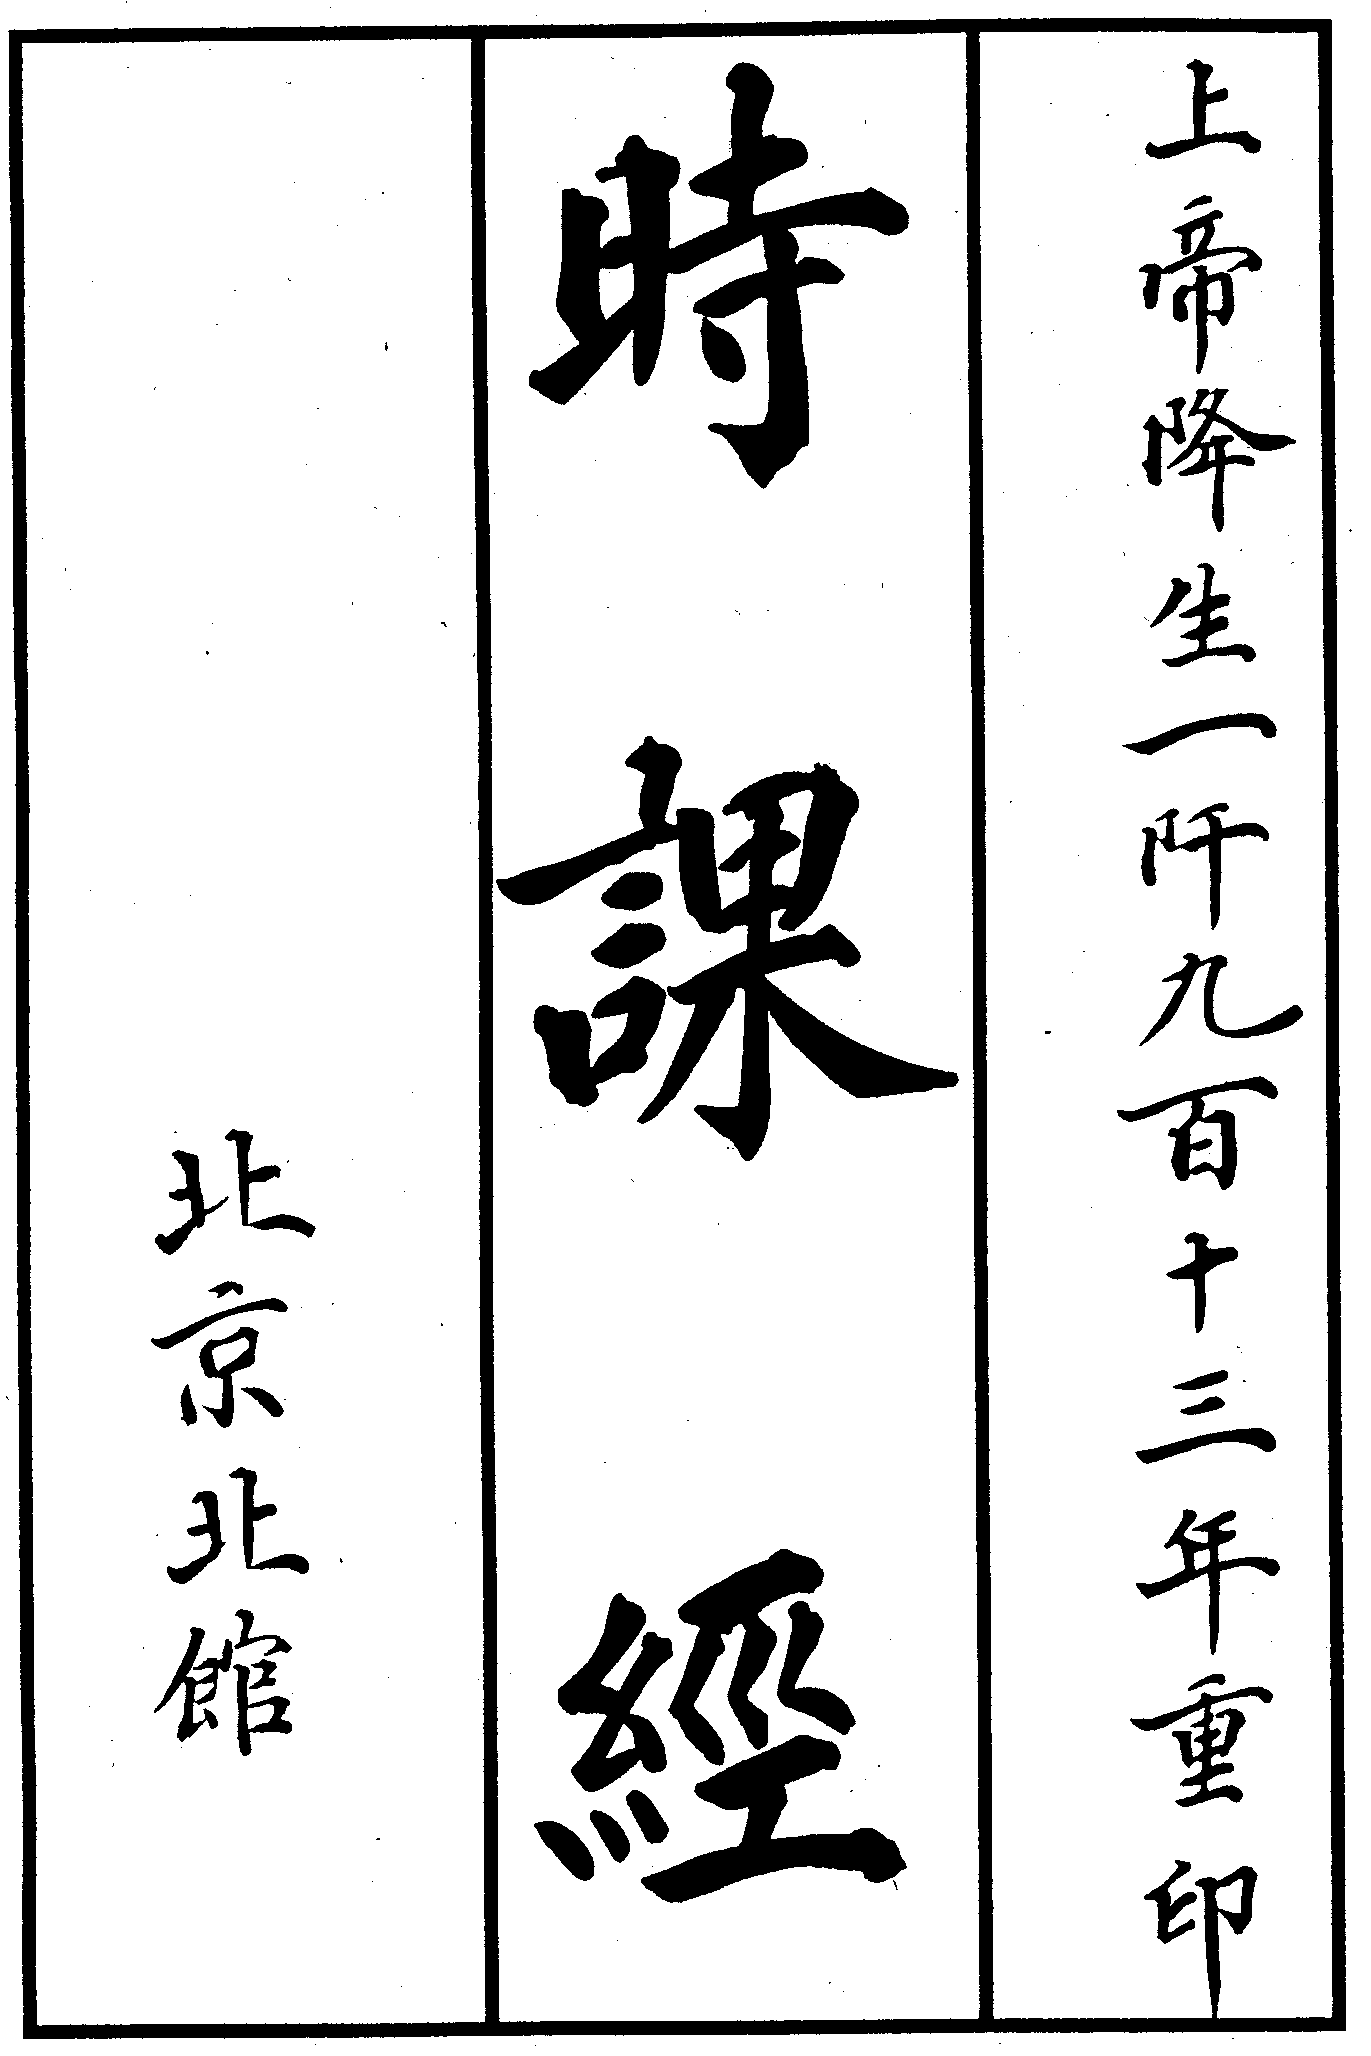 上帝降生一阡九百十三年重印
時課經
北京北館